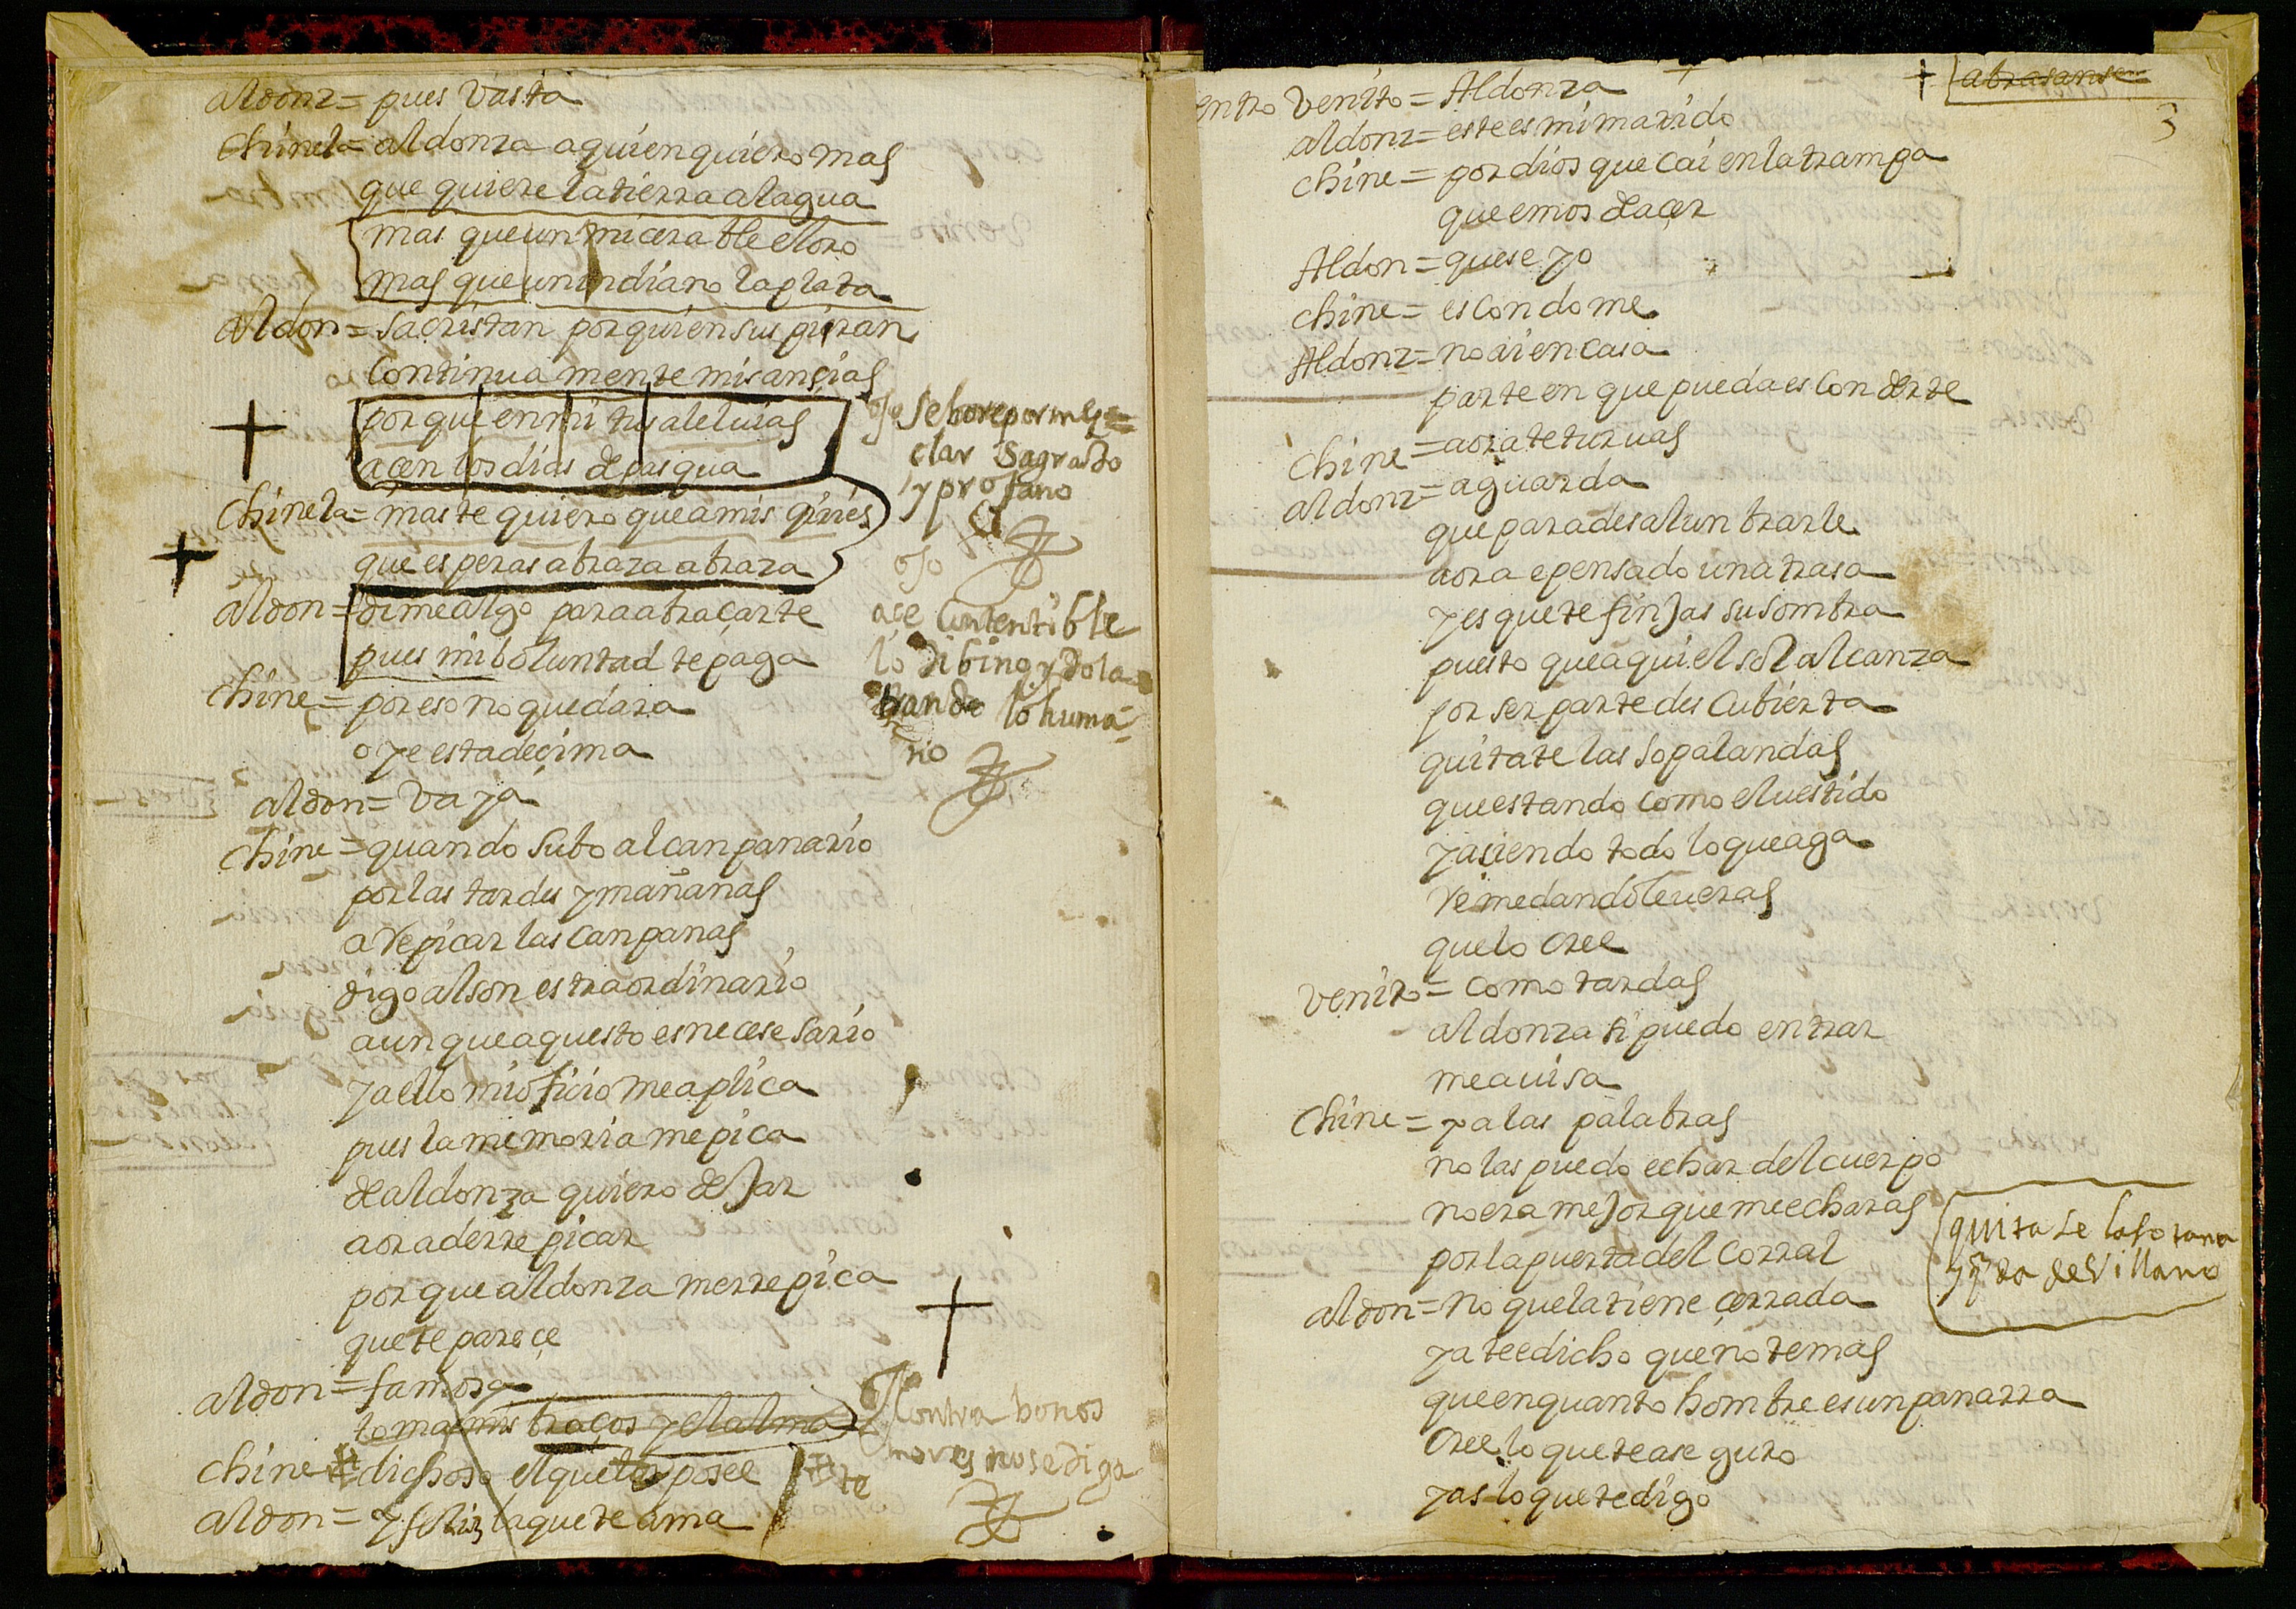 aldonz= pues vasta
chinela= aldonza aquien quiero mas
que quiere la tierra al agua
mas que un micerable el oro
mas que un indiano la plata
aldon= sacristan por quien suspiran
continua mente mis ansias
por que en mi tus aleluias
açen los dias de pasqua
chinela= mas te quiero que a mis quiries
que esperas abraza abraza
aldon= dime algo para abraçarte
pues mi boluntad te paga
chine= por eso no quedara
oye esta deçima
aldon= vaya
chine= quando subo al canpanario
por las tardes y mañanas
a repicar las canpanas
digo al son estraordinario
aunque aquesto es necesesario
y a ello mi oficio me aplica
pues la memoria me pica
de aldonza quiero deJar
aora de rrepicar
por que aldonza me rrepica
que te pareçe
aldon= famosa
toma mis braços y el alma
chine dichoso el que los posee
te
aldon= y feliz la que te ama
ojo se bore por mes=
clar sagrado
y profano
ojo
ace contentible
lo dibino ydola
trando lo huma
no
contra bonos
mores no se diga
abrasanse
3
entro venito= Aldonza
aldonz= este es mi marido
chine= por dios que cai en la trampa
que emos de açer
Aldon= que se yo
chine= escondome
Aldonz= no ai en casa
parte en que pueda esconderte
chine= aora te turuas
aldonz= aguarda
que para desalunbrarle
aora e pensado una trasa
y es que te finJas su sombra
puesto que aqui el sol alcanza
por ser parte descubierta
quitate las sopalandas
que estando como el uestido
yaciendo todo lo que aga
remedandole ueras
que lo cree
venito= como tardas
aldonza si puedo entrar
me auisa
chine= ya las palabras
no las puedo echar del cuerpo
no era meJor que me echaras
por la puerta del corral
quitase la sotana
y qda de villano
aldon= no que la tiene çerrada
ya te e dicho que no temas
que en quanto hombre es un panarra
cree lo que te aseguro
y as lo que te digo